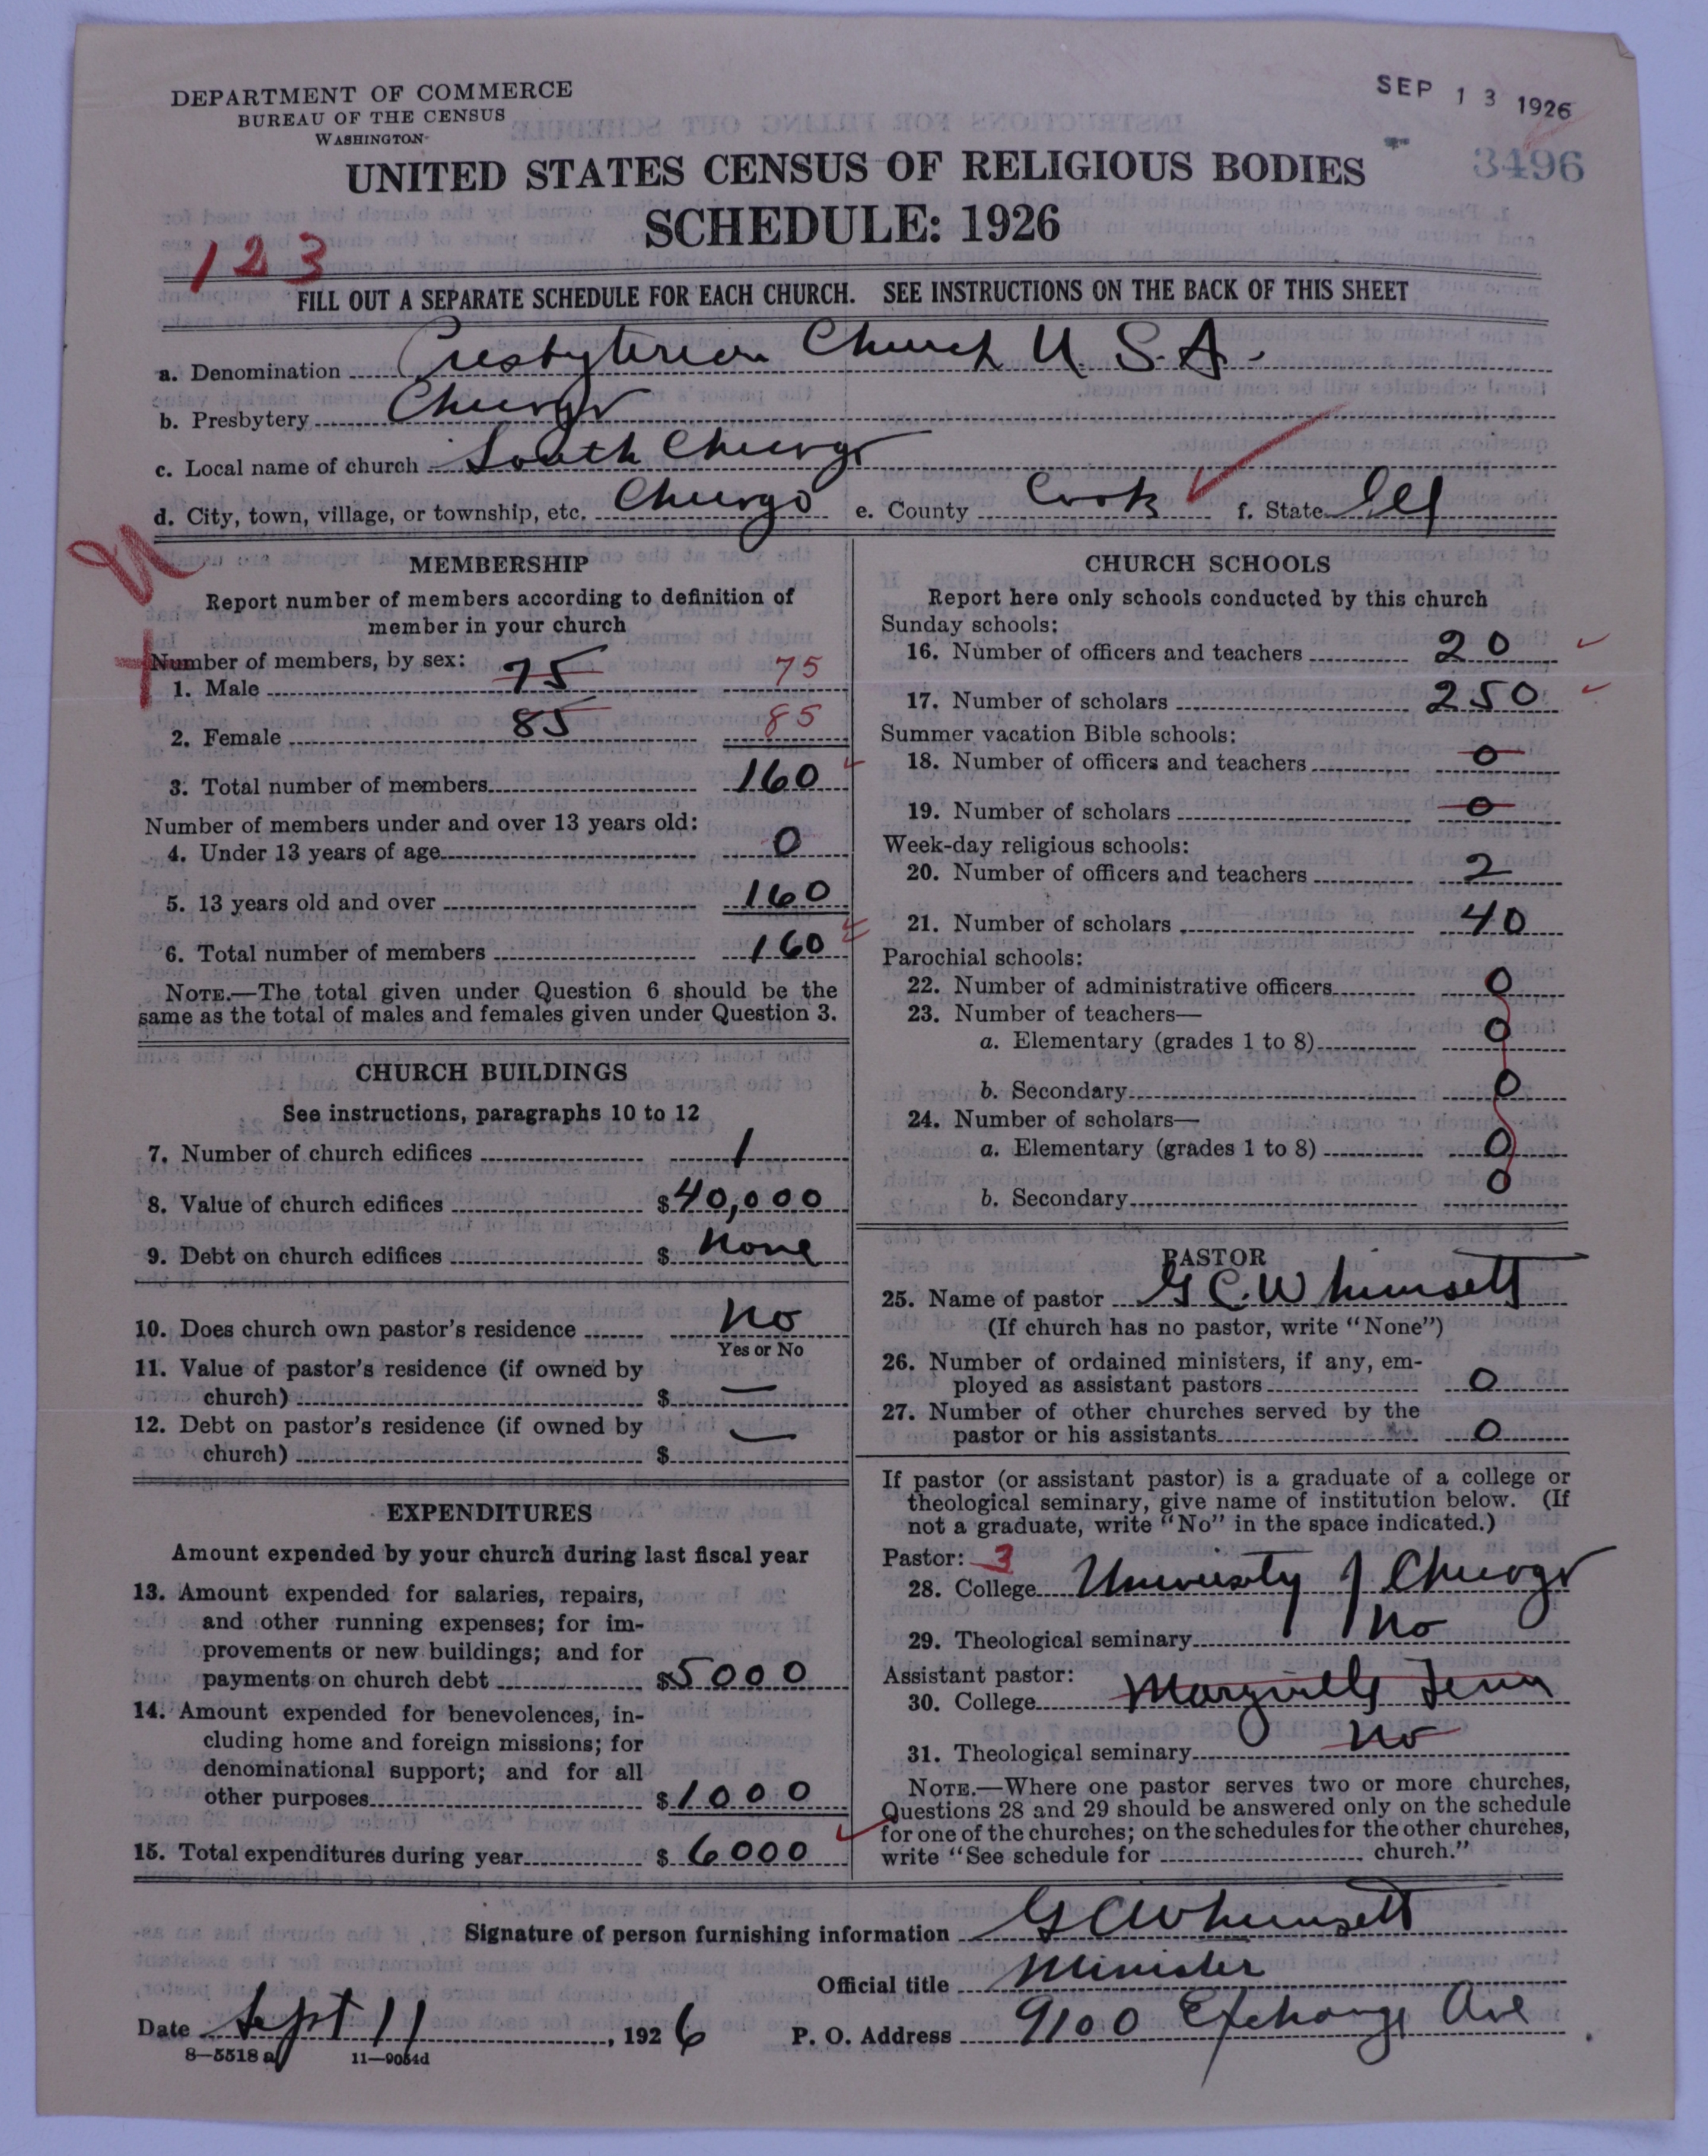 DEPARTMENT OF COMMERCE
BUREAU OF THE CENSUS
WASHINGTON
SEP 13 1926
3496
UNITED STATES CENSUS OF RELIGIOUS BODIES
SCHEDULE: 1926
123
FILL OUT A SEPARATE SCHEDULE FOR EACH CHURCH. SEE INSTRUCTIONS ON THE BACK OF THIS SHEET
a. Denomination Presbyterian Church U. S. A.
b. Presbytery Chicago
c. Local name of church South Chicago
d. City, town, village, or township, etc. Chicago e. County Cook f. State Ill
MEMBERSHIP
Report number of members according to definition of
member in your church
Number of members, by sex:
1. Male 75 75
2. Female 85 85
3. Total number of members 160
Number of members under and over 13 years old:
4. Under 13 years of age 0
5. 13 years old and over 160
6. Total number of members 160
NOTE.—The total given under Question 6 should be the
same as the total of males and females given under Question 3.
CHURCH BUILDINGS
See instructions, paragraphs 10 to 12
7. Number of church edifices 1
8. Value of church edifices $40,000
9. Debt on church edifices $ None
10. Does church own pastor's residence No
Yes or No
11. Value of pastor's residence (if owned by
church) $ —
12. Debt on pastor's residence (if owned by
church) $ —
EXPENDITURES
Amount expended by your church during last fiscal year
13. Amount expended for salaries, repairs,
and other running expenses; for im-
provements or new buildings; and for
payments on church debt $5000
14. Amount expended for benevolences, in-
cluding home and foreign missions; for
denominational support; and for all
other purposes $1000
15. Total expenditures during year $6000
CHURCH SCHOOLS
Report here only schools conducted by this church
Sunday schools:
16. Number of officers and teachers 20
17. Number of scholars 250
Summer vacation Bible schools:
18. Number of officers and teachers 0
19. Number of scholars 0
Week-day religious schools:
20. Number of officers and teachers 2
21. Number of scholars 40
Parochial schools:
22. Number of administrative officers 0
23. Number of teachers—
a. Elementary (grades 1 to 8) 0
b. Secondary 0
24. Number of scholars—
a. Elementary (grades 1 to 8) 0
b. Secondary 0
PASTOR
25. Name of pastor G C. Whimsett
(If church has no pastor, write "None")
26. Number of ordained ministers, if any, em-
ployed as assistant pastors 0
27. Number of other churches served by the
pastor or his assistants 0
If pastor (or assistant pastor) is a graduate of a college or
theological seminary, give name of institution below. (If
not a graduate, write "No" in the space indicated.)
Pastor: 3
28. College University of Chicago
29. Theological seminary No
Assistant pastor:
30. College Maryville Tenn
31. Theological seminary No
NOTE.—Where one pastor serves two or more churches,
Questions 28 and 29 should be answered only on the schedule
for one of the churches; on the schedules for the other churches,
write "See schedule for ______ church."
Signature of person furnishing information G C Whimsett
Official title Minister
Date Sept 11, 1926 P. O. Address 9100 Exchange Ave
8—5518 a 11—9054d